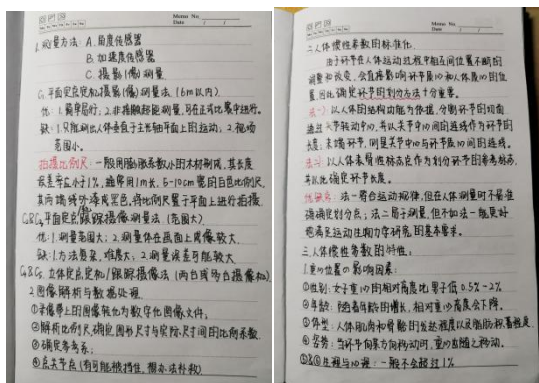 Memo No.
Date / /
1. 测量方法: A. 角度传感器
B. 加速度传感器
C. 摄影(像)测量
C₁ 平面定点定机摄影(像)测量法 (16m以内)
优: 1. 简单易行; 2. 非接触超距测量, 可在正式比赛中进行。
缺: 1. 只能测出人体垂直于主光轴平面上的运动; 2. 视场
范围小。
拍摄比例尺: 一般用膨胀系数小的木材制成, 其长度
误差应小于1%, 通常用1m长, 5-10cm宽的白色比例尺,
其两端线外涂成黑色, 将比例尺置于平面上进行拍摄
C₂&C₃ 平面定点跟踪摄像测量法 (范围大)
优: 1. 测量范围大; 2. 测量体在画面上成像较大
缺: 1. 方法复杂, 难度大; 2. 测量误差可能较大
C₄&C₅. 立体定点定机/跟踪摄像法 (两台或多台摄像机)
2. 图像解析与数据处理
①录像带上的图像转化为数字化图像文件;
②解析比例尺, 确定图形尺寸与实际尺寸间的比例系数
③确定参考系;
④点关节点 (有可能被挡住, 想办法补救)
Memo No.
Date / /
二. 人体惯性参数的标准化.
由于环节在人体运动过程中相互间位置不断的
调整和改变, 会直接影响环节质心和人体质心的位
置, 因此确定环节的划分方法十分重要。
法一: 以人体的结构功能为依据, 分割环节的切面
通过关节转动中心, 并以关节中心间的连线作为环节的
长度; 末端环节, 则是关节中心与环节质心间的连线。
法二: 以人体骨性标志点作为划分环节的参考标志,
并以此确定环节长度。
优缺点: 法一符合运动规律, 但在人体测量时不易准
确确定划分点; 法二易于测量, 但不如法一能更好
地满足运动生物力学研究的基本要求。
三. 人体惯性参数的特性:
1. 重心位置の影响因素:
①性别: 女子重心的相对高度比男子低0.5%-2%
②年龄: 随着年龄的增长, 相对重心高度会下降。
③体型: 人体肌肉和骨骼的发达程度以及脂肪积蓄程度.
④姿势: 当环节向某方向移动时, 重心也随之移动。
⑤&⑥生理与心理: 一般不会超过1%